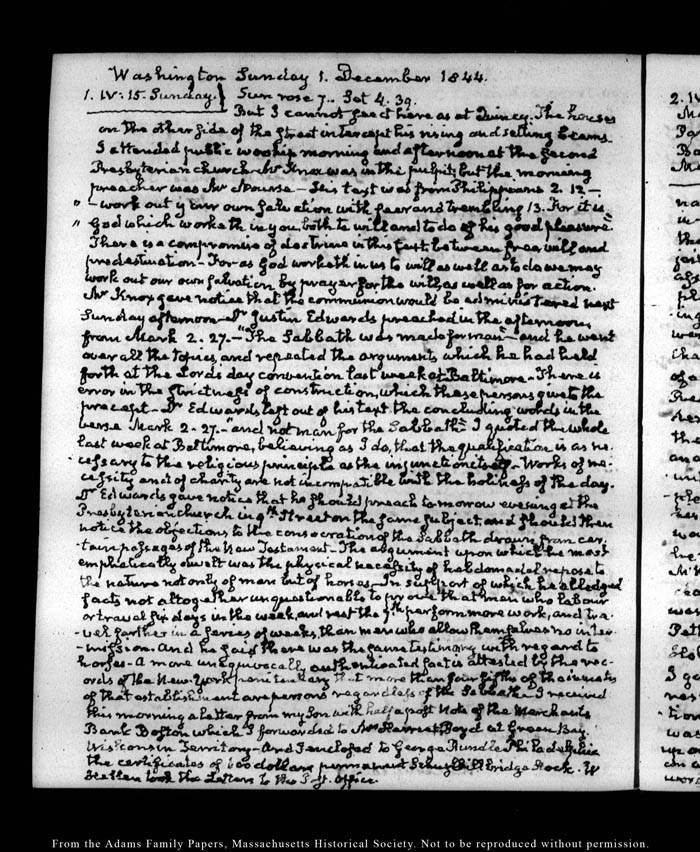 Washington Sunday 1. December 1844.
1. IV: 15. Sunday.} Sun rose 7.. Set 4.39.
But I cannot see it here as at Quincy. The houses
on the other side of the street intercept his rising and setting beams.
I attended public worship morning and afternoon at the second
Presbyterian church. Mr Knox was in the pulpit; but the morning
preacher was Mr Nourse — His text was from Philippians 2. 12 —
" — work out your own salvation with fear and trembling 13. For it is
" God which worketh in you both to will and to do of his good pleasure"
There is a compromise of doctrine in this text between free will and
predestination — For as God worketh in us to will as well as to do we may
work out our own salvation by prayer for the will, as well as for action.
Mr Knox gave notice that the communion would be administered next
Sunday afternoon — Dr Justin Edwards preached in the afternoon,
from Mark 2. 27. — "The Sabbath was made for man" — and he went
over all the topics, and repeated the arguments which he had held
forth at the Lord's day convention last week at Baltimore — There is
error in the strictness of construction, which these persons give to the
precept — Dr Edwards left out of his text the concluding words in the
verse Mark 2. 27. "and not man for the Sabbath — I quoted the whole
last week at Baltimore, believing as I do, that the qualification is as ne-
cessary to the religious principle as the injunction itself — Works of ne-
cessity and of charity are not incompatible with the holiness of the day.
Dr Edwards gave notice that he should preach to morrow evening at the
Presbyterian church in 9th Street on the same subject, and should then
notice the objections to the consecration of the Sabbath drawn from cer-
-tain passages of the New Testament — The argument upon which he most
emphatically dwelt was the physical necessity of hebdomadal repose to
the nature not only of man but of horses — In support of which he alledged
facts not altogether unquestionable to prove that man who labour
or travail six days in the week, and rest the 7th perform more work, and tra-
-vel farther in a series of weeks, than men who allow themselves no inter-
-mission. And he said there was the same testimony with regard to
horses — A more unequivocally authenticated fact is attested by the rec-
ords of the New-York penitentiary that more than four fifths of the inmates
of that establishment are persons regardless of the Sabbath — I received
this morning a letter from my Son with half a post Note of the Merchants
Bank Boston which I forwarded to Mrs Harriet Boyd at Green Bay
Wisconsin Territory — And I enclosed to George Rundle Philadelphia
the certificates of 600 dollars permanent Schuylkill bridge Stock. W
took the Letters to the Post Office
2. IV
From the Adams Family Papers, Massachusetts Historical Society. Not to be reproduced without permission.